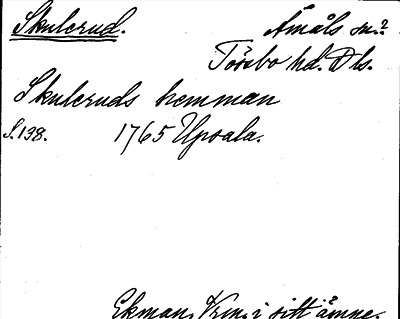 Skulerud.
Åmåls sn.?
Törebo hd. Dls.
Skuleruds hemman
S. 138. 1765 Upsala.
Ekman, Vrm. i sitt ämne.